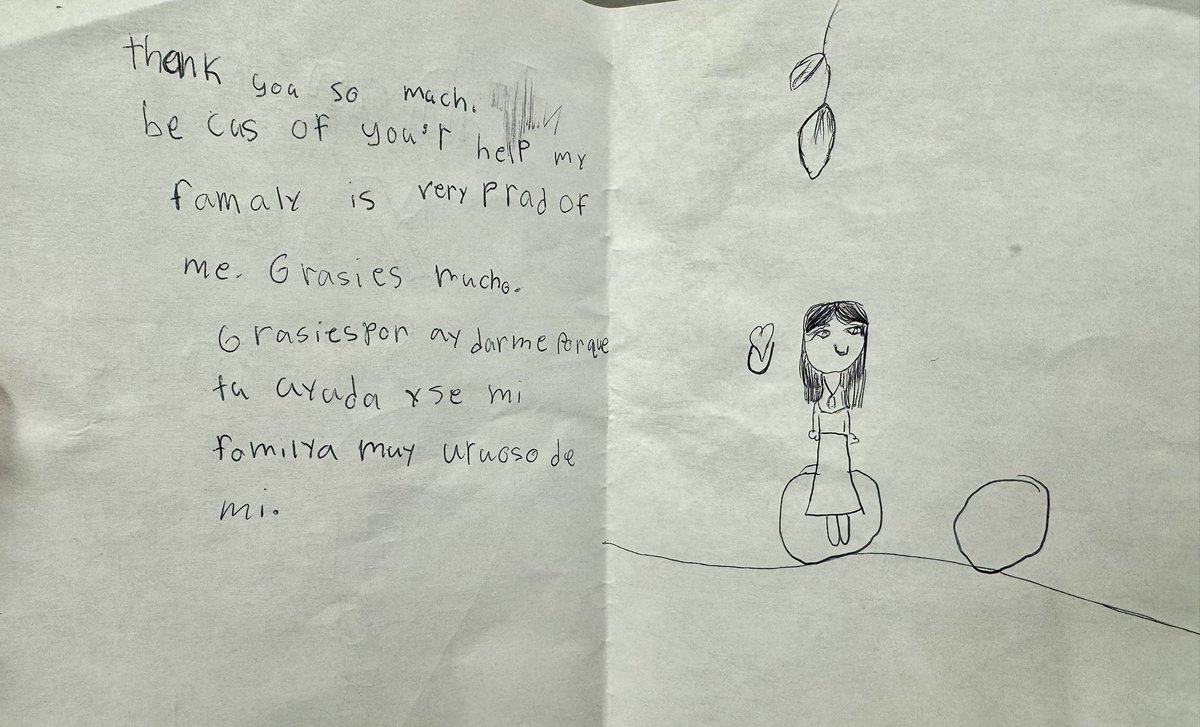 thank you so mach.
be cus of you'r help my
famaly is very prad of
me. Grasies mucho.
Grasies por aydarme porque
tu ayuda yse mi
familya muy uruoso de
mi.